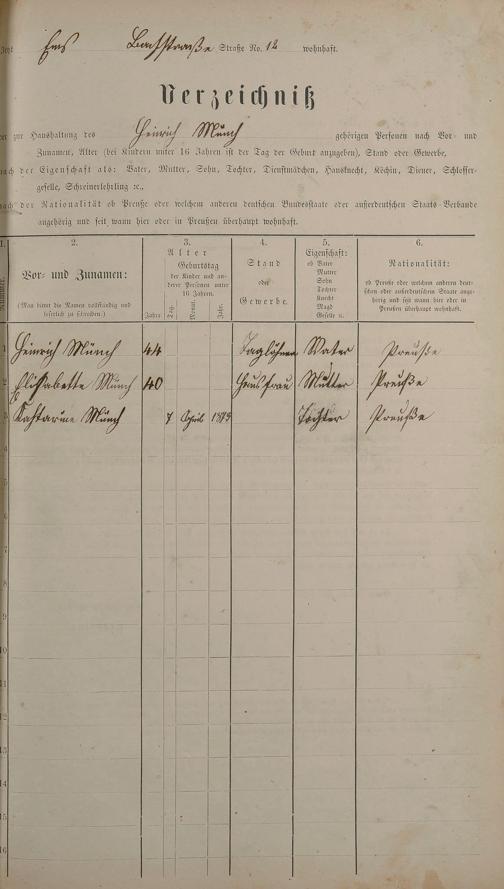 Ems Bachstraße Straße No. 12 wohnhaft.
Verzeichniß
der zur Haushaltung des Heinrich Münch gehörigen Personen nach Vor- und
Zunamen, Alter (bei Kindern unter 16 Jahren ist der Tag der Geburt anzugeben), Stand oder Gewerbe,
nach der Eigenschaft als: Vater, Mutter, Sohn, Tochter, Dienstmädchen, Hausknecht, Köchin, Diener, Schlosser-
geselle, Schreinerlehrling ꝛc.,
nach der Nationalität ob Preuße oder welchem anderen deutschen Bundesstaate oder außerdeutschen Staats-Verbande
angehörig und seit wann hier oder in Preußen überhaupt wohnhaft.
1. 2. 3. 4. 5. 6.
Nummer.
Vor- und Zunamen:
(Man bittet die Namen vollständig und
leserlich zu schreiben.)
Alter
Geburtstag
der Kinder und an-
derer Personen unter
16 Jahren.
Jahre Tag. Monat. Jahr.
Stand
oder
Gewerbe.
Eigenschaft:
ob Vater
Mutter
Sohn
Tochter
Knecht
Magd
Geselle ꝛc.
Nationalität:
ob Preuße oder welchem anderen deut-
schen oder außerdeutschen Staate ange-
hörig und seit wann hier oder in
Preußen überhaupt wohnhaft.
1 Heinrich Münch 44 Taglöhner Vater Preuße
2 Elisabette Münch 40 Hausfrau Mutter Preuße
3 Kahtarine Münch 7 April Tochter Preuße
4
5
6
7
8
9
10
11
12
13
14
15
16